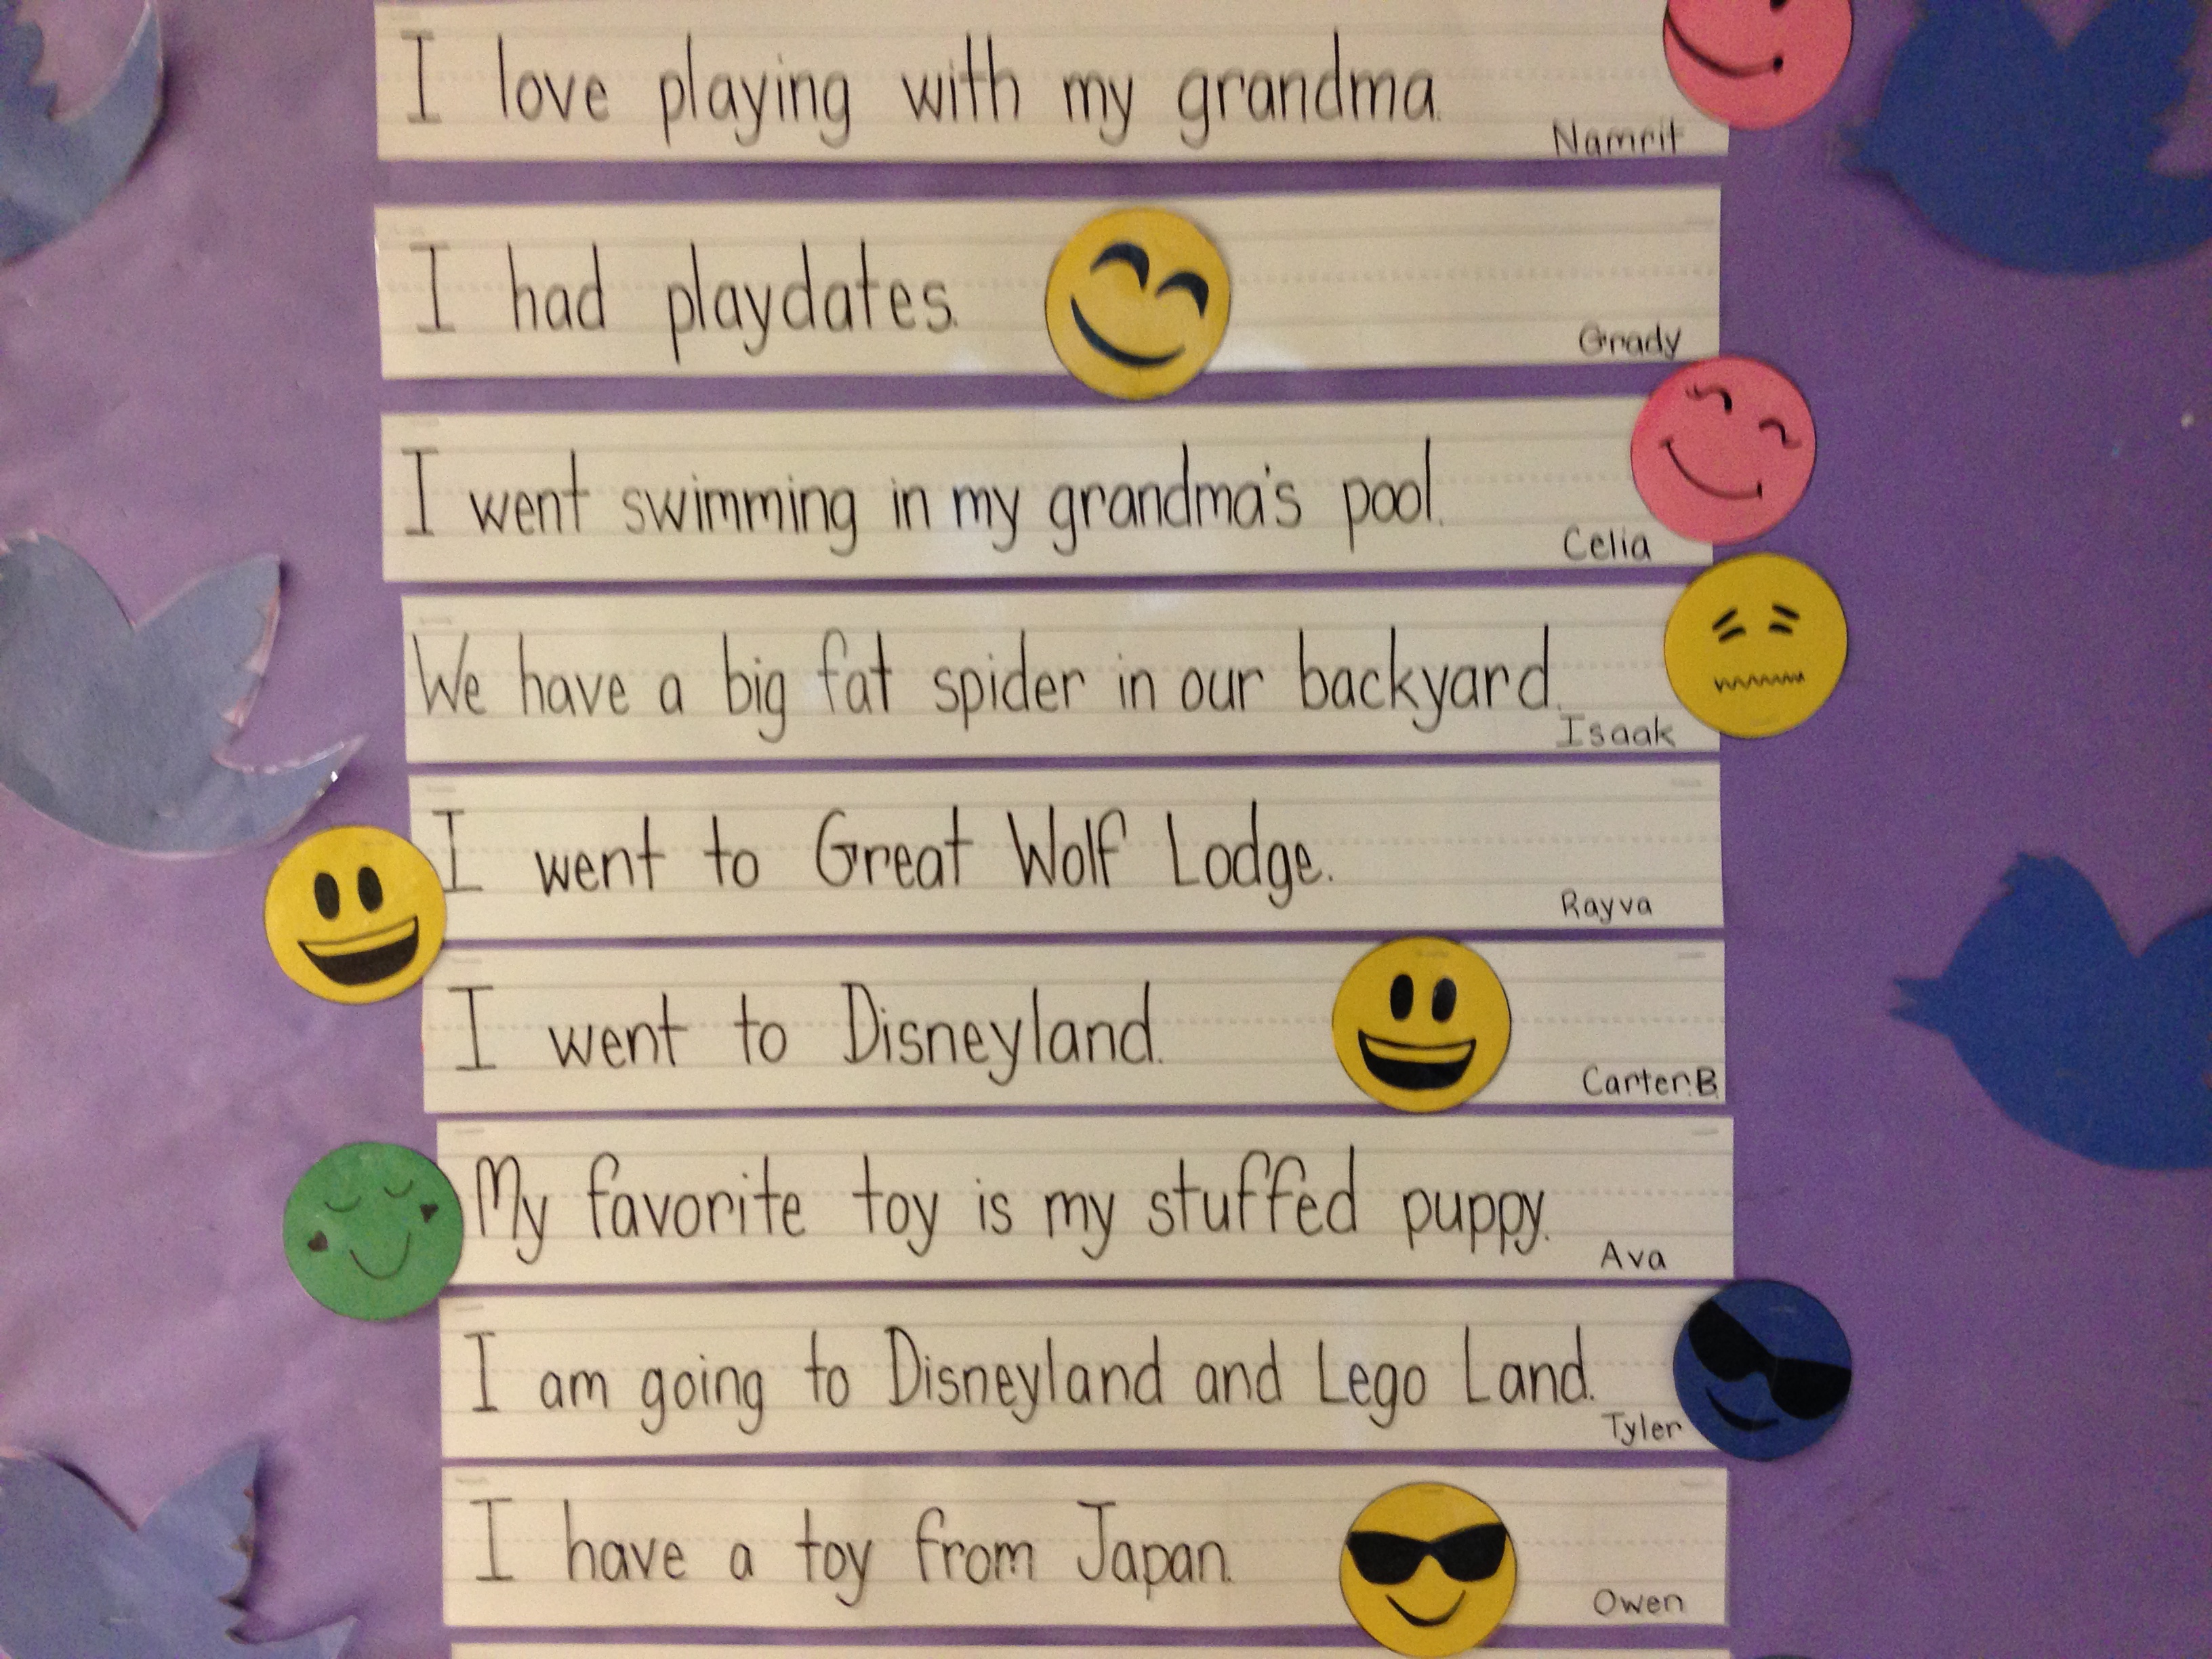 I love playing with my grandma.
Namrit
I had playdates.
Grady
I went swimming in my grandma's pool.
Celia
We have a big fat spider in our backyard.
Isaak
I went to Great Wolf Lodge.
Rayva
I went to Disneyland.
Carter.B
My favorite toy is my stuffed puppy.
Ava
I am going to Disneyland and Lego Land.
Tyler
I have a toy from Japan.
Owen